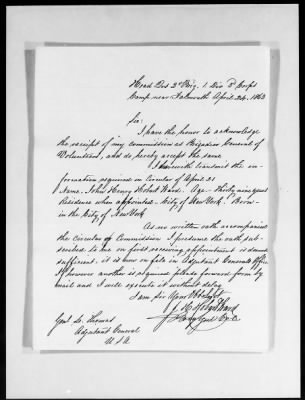 Head Qrs 2d Brig. 1 Div 3d Corps
Camp near Falmouth April 24, 1863
Sir:
I have the honor to acknowledge
the receipt of my commission as Brigadier General of
Volunteers, and do hereby accept the same
I herewith transmit the in-
formation required in Circular of April 31
Name, John Henry Hobart Ward. Age - thirty nine years
Residence when appointed - City of New York. Born-
in the City of New York
As no written oath accompanied
the circular or Commission I presume the oath sub-
scribed to me on first receiving appointment is deemed
sufficient. it is now on file in Adjutant Generals Office
If however another is required please forward form by
mail and I will execute it without delay
I am Sir Your Obt Servt
J. H. Hobart Ward
Brig Genl
Genl L. Thomas
Adjutant General
U S A